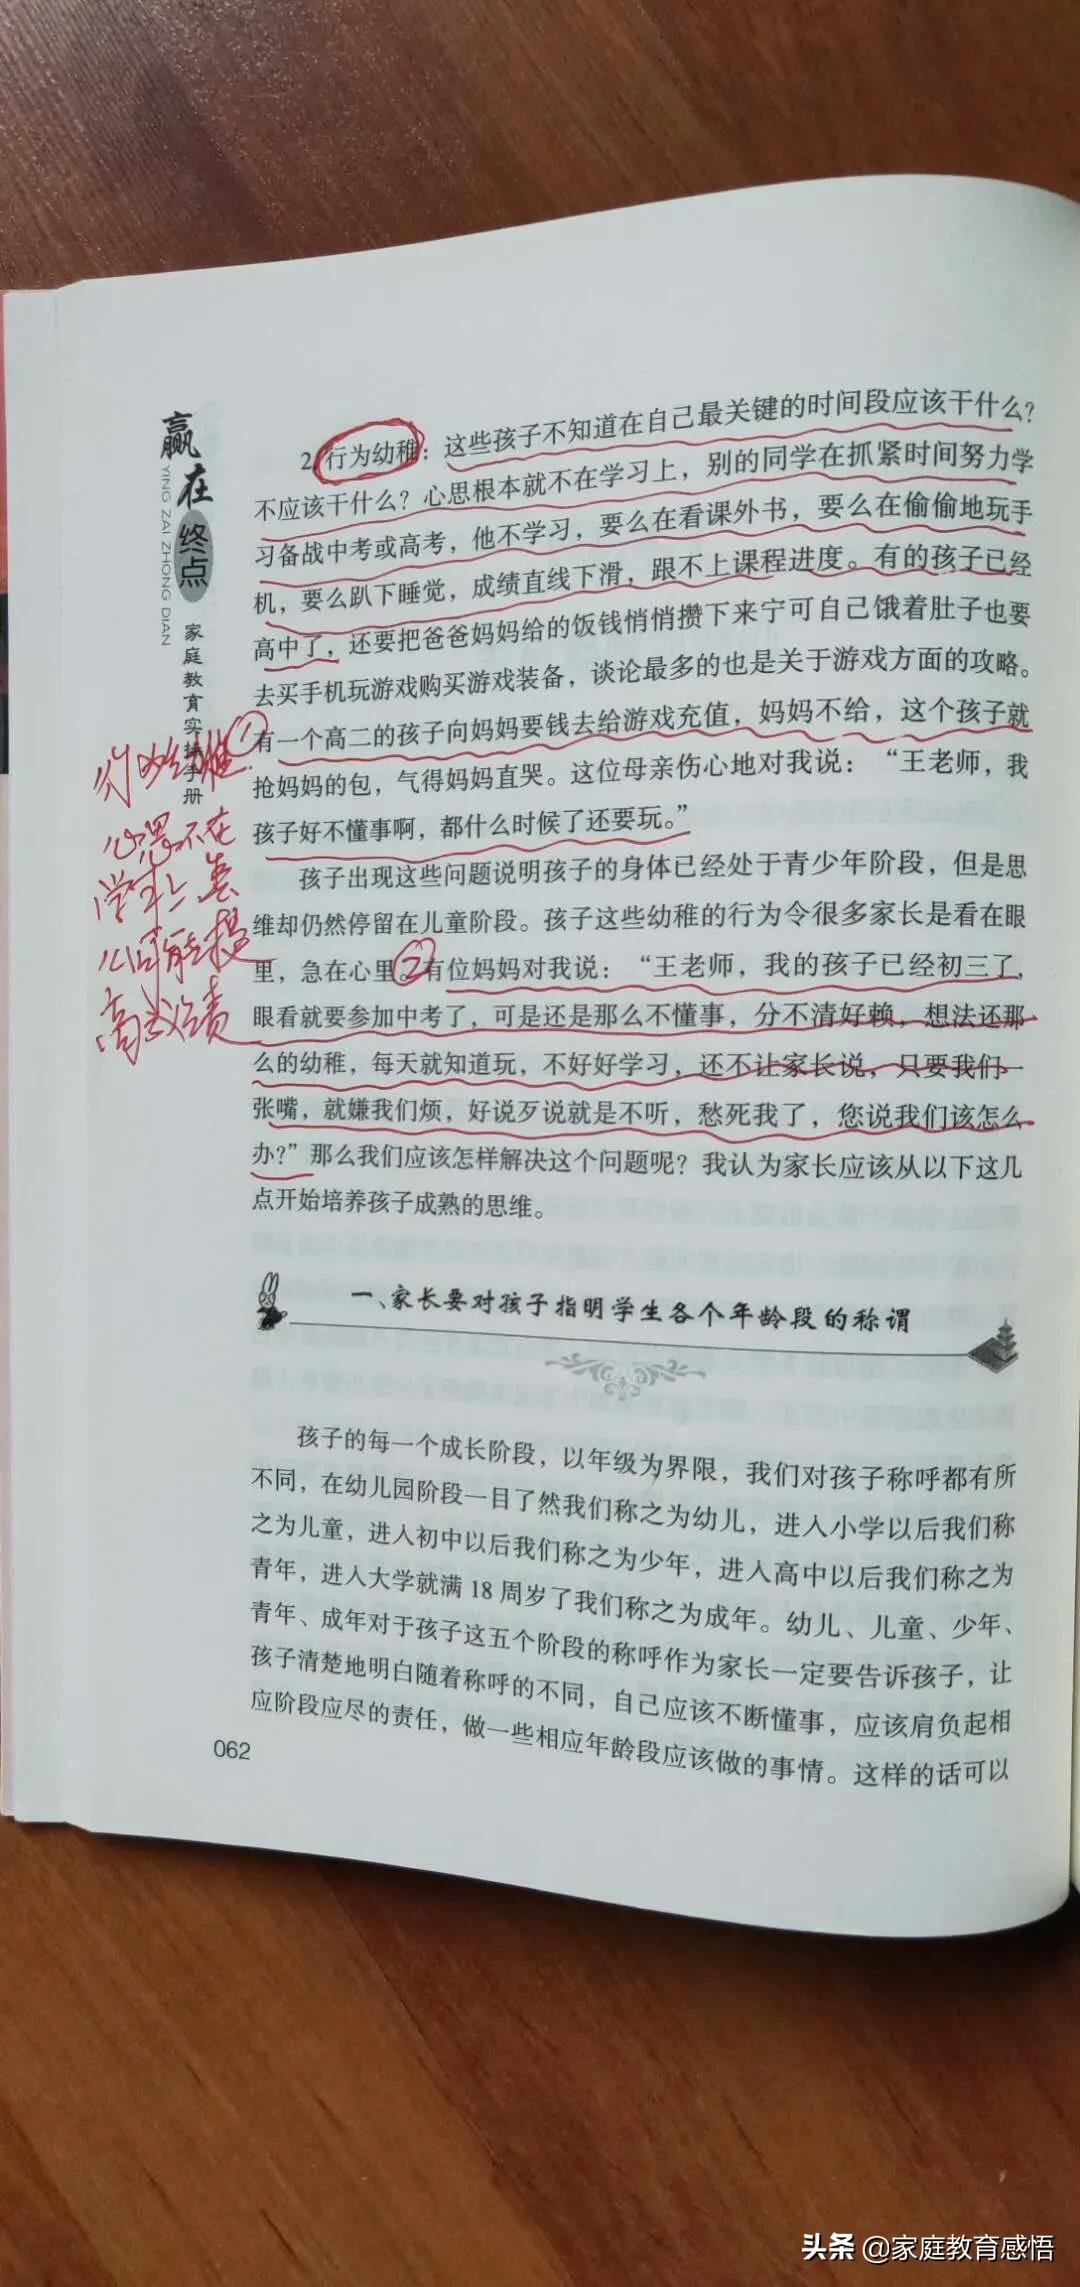 赢在终点
YING ZAI ZHONG DIAN
家庭教育实操手册
2. 行为幼稚：这些孩子不知道在自己最关键的时间段应该干什么？
不应该干什么？心思根本就不在学习上，别的同学在抓紧时间努力学
习备战中考或高考，他不学习，要么在看课外书，要么在偷偷地玩手
机，要么趴下睡觉，成绩直线下滑，跟不上课程进度。有的孩子已经
高中了，还要把爸爸妈妈给的饭钱悄悄攒下来宁可自己饿着肚子也要
去买手机玩游戏购买游戏装备，谈论最多的也是关于游戏方面的攻略。
①
有一个高二的孩子向妈妈要钱去给游戏充值，妈妈不给，这个孩子就
抢妈妈的包，气得妈妈直哭。这位母亲伤心地对我说：“王老师，我
孩子好不懂事啊，都什么时候了还要玩。”
孩子出现这些问题说明孩子的身体已经处于青少年阶段，但是思
维却仍然停留在儿童阶段。孩子这些幼稚的行为令很多家长是看在眼
里，急在心里。②有位妈妈对我说：“王老师，我的孩子已经初三了，
眼看就要参加中考了，可是还是那么不懂事，分不清好赖，想法还那
么的幼稚，每天就知道玩，不好好学习，还不让家长说，只要我们一
张嘴，就嫌我们烦，好说歹说就是不听，愁死我了，您说我们该怎么
办？”那么我们应该怎样解决这个问题呢？我认为家长应该从以下这几
点开始培养孩子成熟的思维。
行为幼稚
心思不在
学习上，怎
么可能提
高成绩
一、家长要对孩子指明学生各个年龄段的称谓
孩子的每一个成长阶段，以年级为界限，我们对孩子称呼都有所
不同，在幼儿园阶段一目了然我们称之为幼儿，进入小学以后我们称
之为儿童，进入初中以后我们称之为少年，进入高中以后我们称之为
青年，进入大学就满 18 周岁了我们称之为成年。幼儿、儿童、少年、
青年、成年对于孩子这五个阶段的称呼作为家长一定要告诉孩子，让
孩子清楚地明白随着称呼的不同，自己应该不断懂事，应该肩负起相
应阶段应尽的责任，做一些相应年龄段应该做的事情。这样的话可以
062
头条 @家庭教育感悟